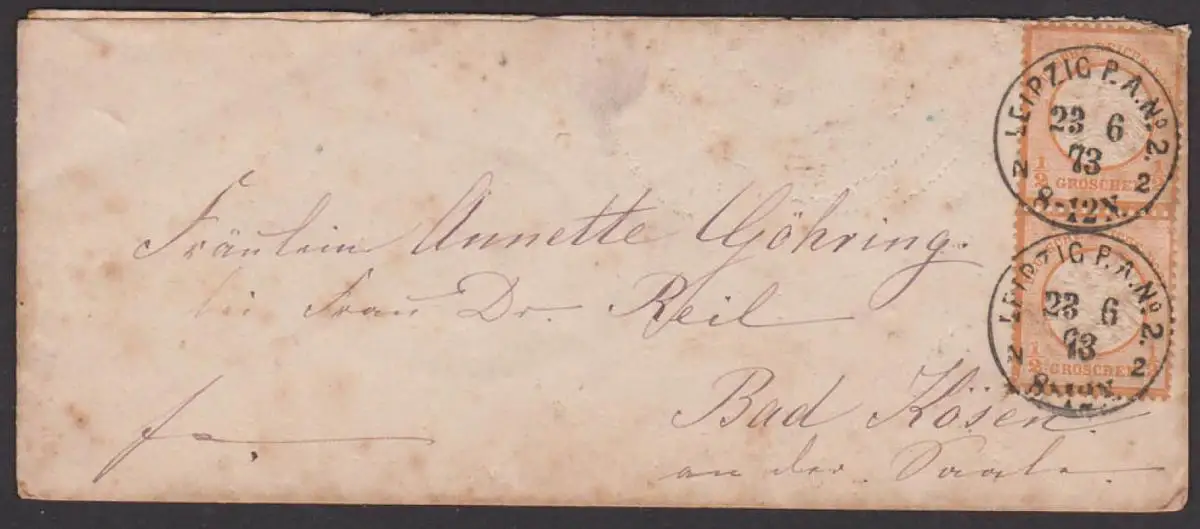 Fräulein Annette Göhring.
bei Frau Dr. Reil
Bad Kösen.
an der Saale
LEIPZIG P.A.No. 2.
23 6
73
8-12N.
2 2
½ GROSCHEN ½
LEIPZIG P.A.No. 2.
23 6
73
8-12N.
2 2
½ GROSCHEN ½